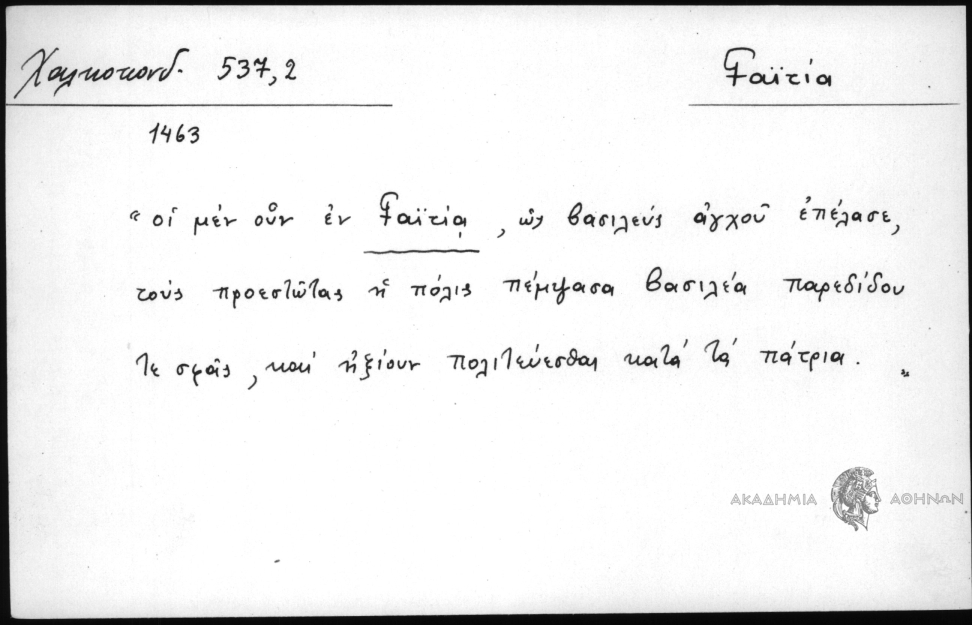 Χαλκοκονδ. 537,2
Γαϊτία
1463
“ οἱ μέν οὖν ἐν Γαϊτίᾳ , ὡς βασιλεύς ἀγχοῦ ἐπέλασε,
τούς προεστῶτας ἡ πόλις πέμψασα βασιλέα παρεδίδου
τε σφᾶς , καί ἠξίουν πολιτεύεσθαι κατά τά πάτρια . „
ΑΚΑΔΗΜΙΑ ΑΘΗΝΩΝ